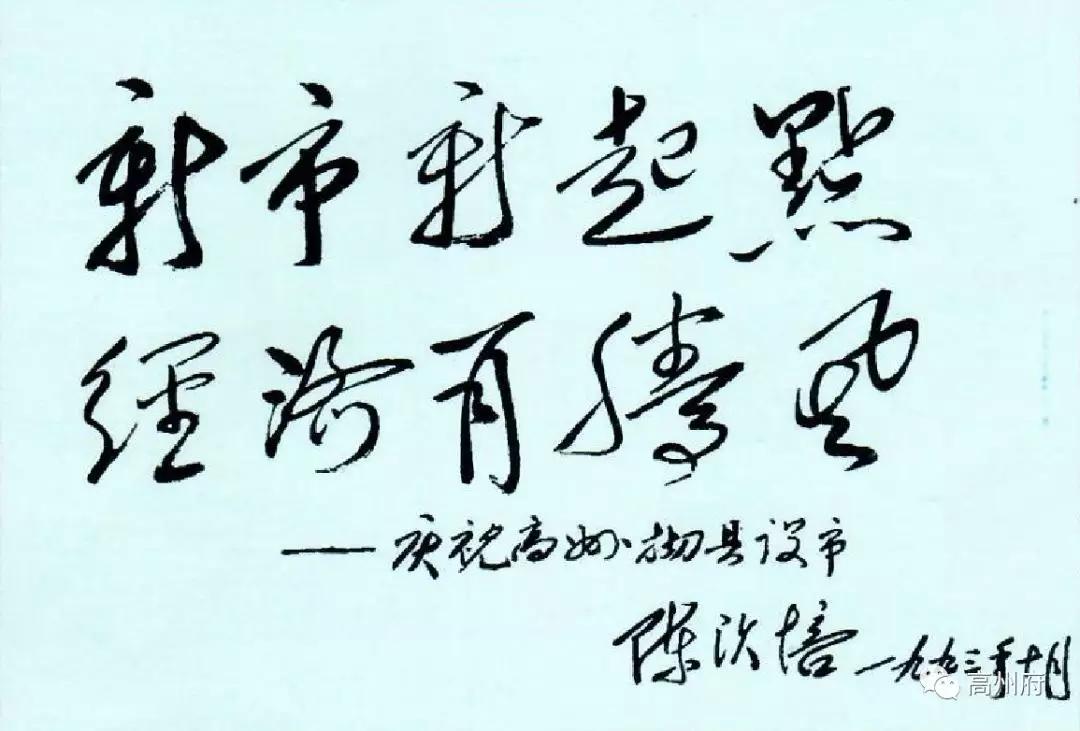 新市新起點
經濟再騰飛
——庆祝高州撤县设市
陈次培 一九九三年十月
高州府